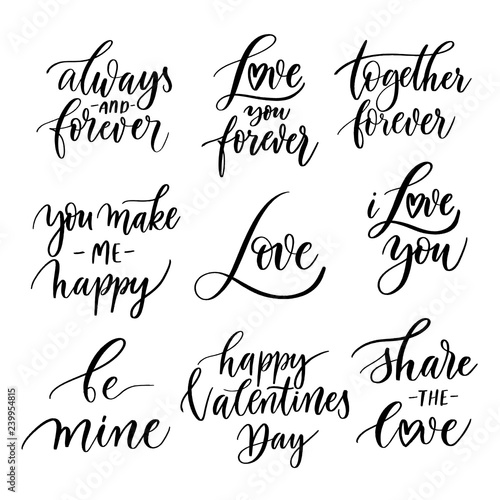 always
-AND-
forever
Love
you
forever
together
forever
you make
-ME-
happy
Love
i Love
you
be
mine
happy
Valentines
Day
share
-THE-
love
Adobe Stock | #239954815